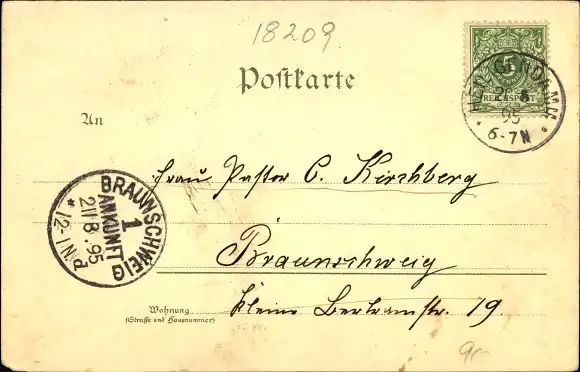 18209
Postkarte
5
REICHSPOST
95
6-7N
An
Frau Pastor C. Kirchberg
BRAUNSCHWEIG
1
ANKUNFT
2 | 8.95
12-1N
Braunschweig
Wohnung
(Straße und Hausnummer)
kleine Bertramstr. 19.